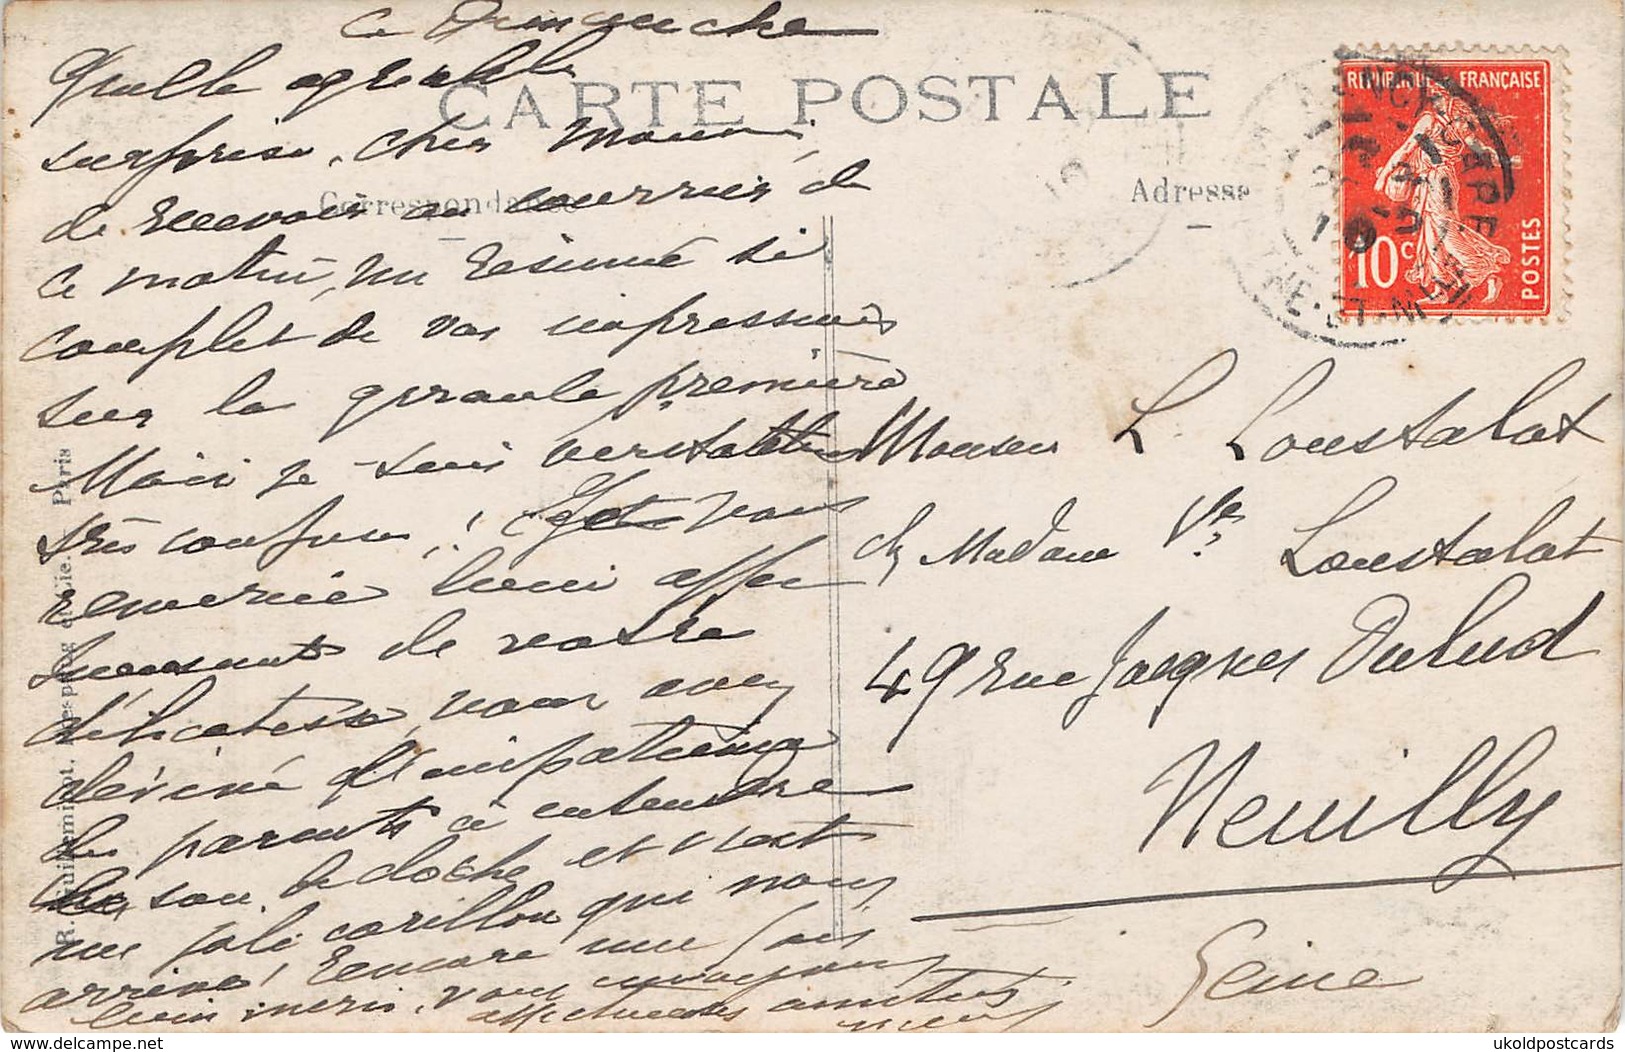 ce Dimanche
CARTE POSTALE
Correspondance
Adresse
Quelle agréable
surprise, cher Monsieur,
de recevoir au courrier de
ce matin, un résumé si
complet de vos impressions
sur la grande première
Mais je suis
très confuse, ! et vous
remercie bien
de votre
délicatesse, vous avez
deviné l'impatience
des parents à entendre
son de cloche et c'est
un joli carillon qui nous
arrive! Encore une fois
bien merci, vous
affectueuses amitiés
REPUBLIQUE FRANÇAISE
10 c
POSTES
Monsieur L. Loustalot
chz Madame Vve Loustalot
49 rue Jacques Dulud
Neuilly
Seine
R. Guilleminot, Bœspflug et Cie. - Paris
delcampe.net
ukoldpostcards